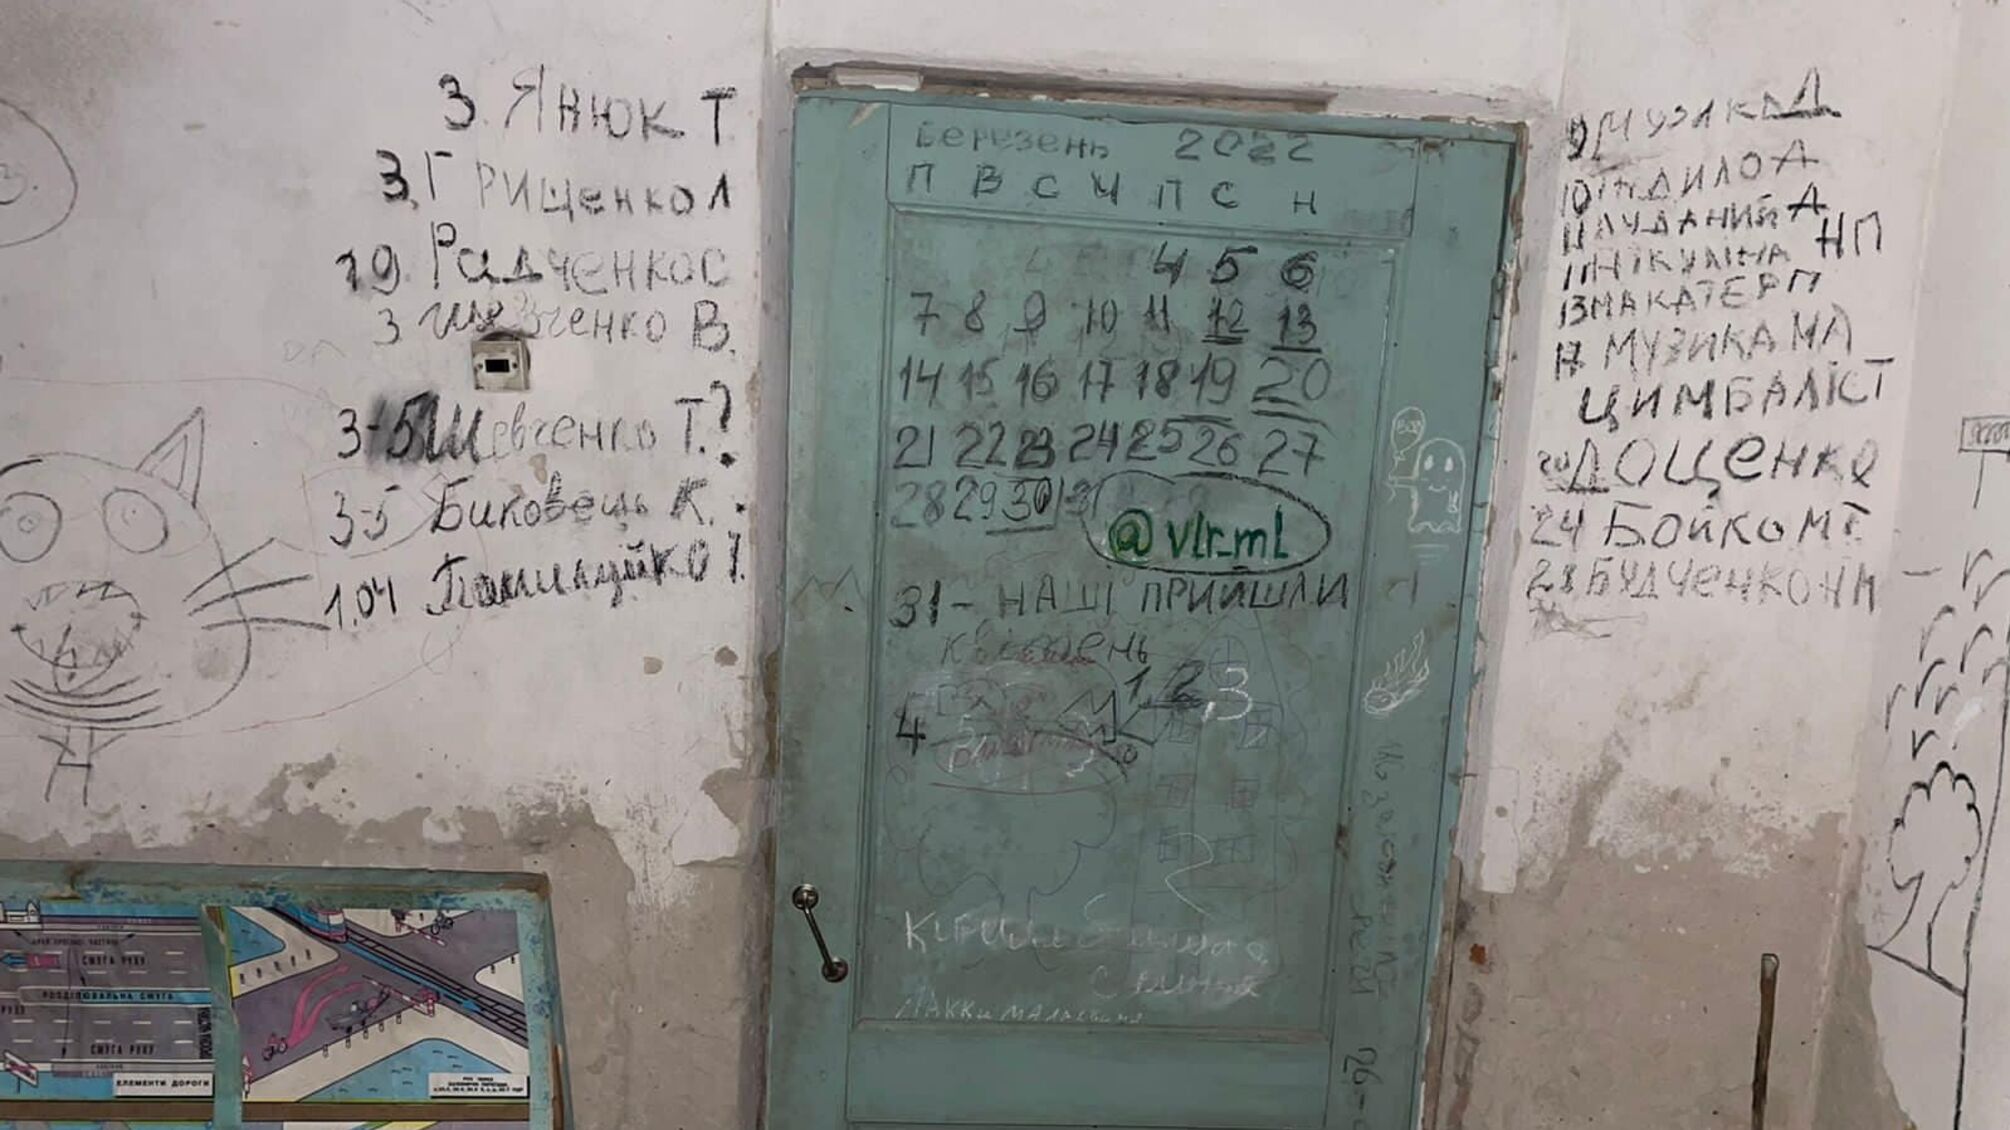 3. ЯНЮК Т
3. ГРИЩЕНКО Л
19. Радченко С
3 Шевченко В.
3-5 Шевченко Т.?
3-5 Биковець К.
1.04
Березень 2022
П В С Ч П С Н
4 5 6
7 8 9 10 11 12 13
14 15 16 17 18 19 20
21 22 23 24 25 26 27
28 29 30 31
@vlr_ml
31 - НАШІ ПРИЙШЛИ
Квітень
1, 2, 3
4
26
9 МУЗИКА Д
10 ІНДИЛО А
11 ЛУДАНИЙ А
11 НІКУЛІНА НП
13 МАКАТЕР П
17 МУЗИКА МА
ЦИМБАЛІСТ
20 ДОЩЕНКО
24 БОЙКО МГ
28 БУДЧЕНКО НМ
СМУГА РУХУ
РОЗДІЛЮВАЛЬНА СМУГА
СМУГА РУХУ
ЕЛЕМЕНТИ ДОРОГИ